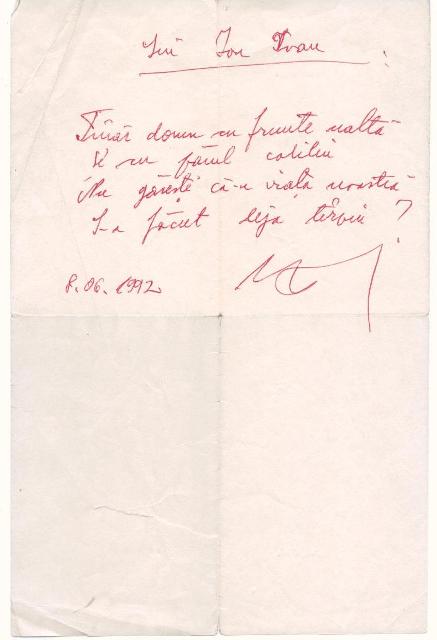 lui Ion Ivan :
Tînăr domn cu frunte naltă
Și cu părul coliliu
Nu găsești că-n viața noastră
S-a făcut deja tîrziu ?
8.06.1992